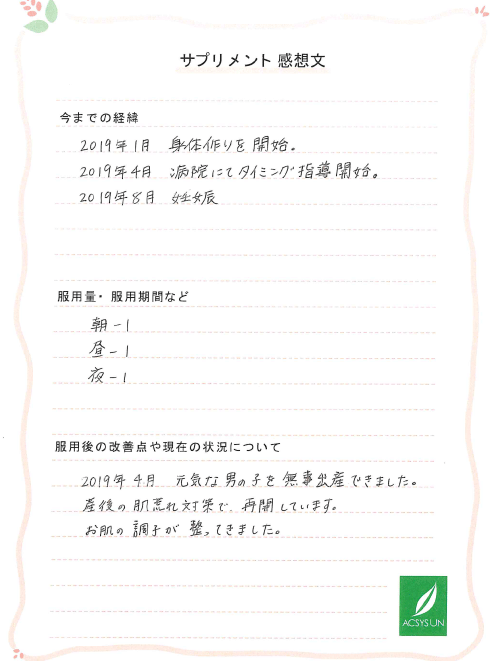 サプリメント 感想文
今までの経緯
2019年1月 身体作りを開始。
2019年4月 病院にてタイミング指導開始。
2019年8月 妊娠
服用量・服用期間など
朝-1
昼-1
夜-1
服用後の改善点や現在の状況について
2019年4月 元気な男の子を無事出産できました。
産後の肌荒れ対策で、再開しています。
お肌の調子が整ってきました。
ACSYSUN